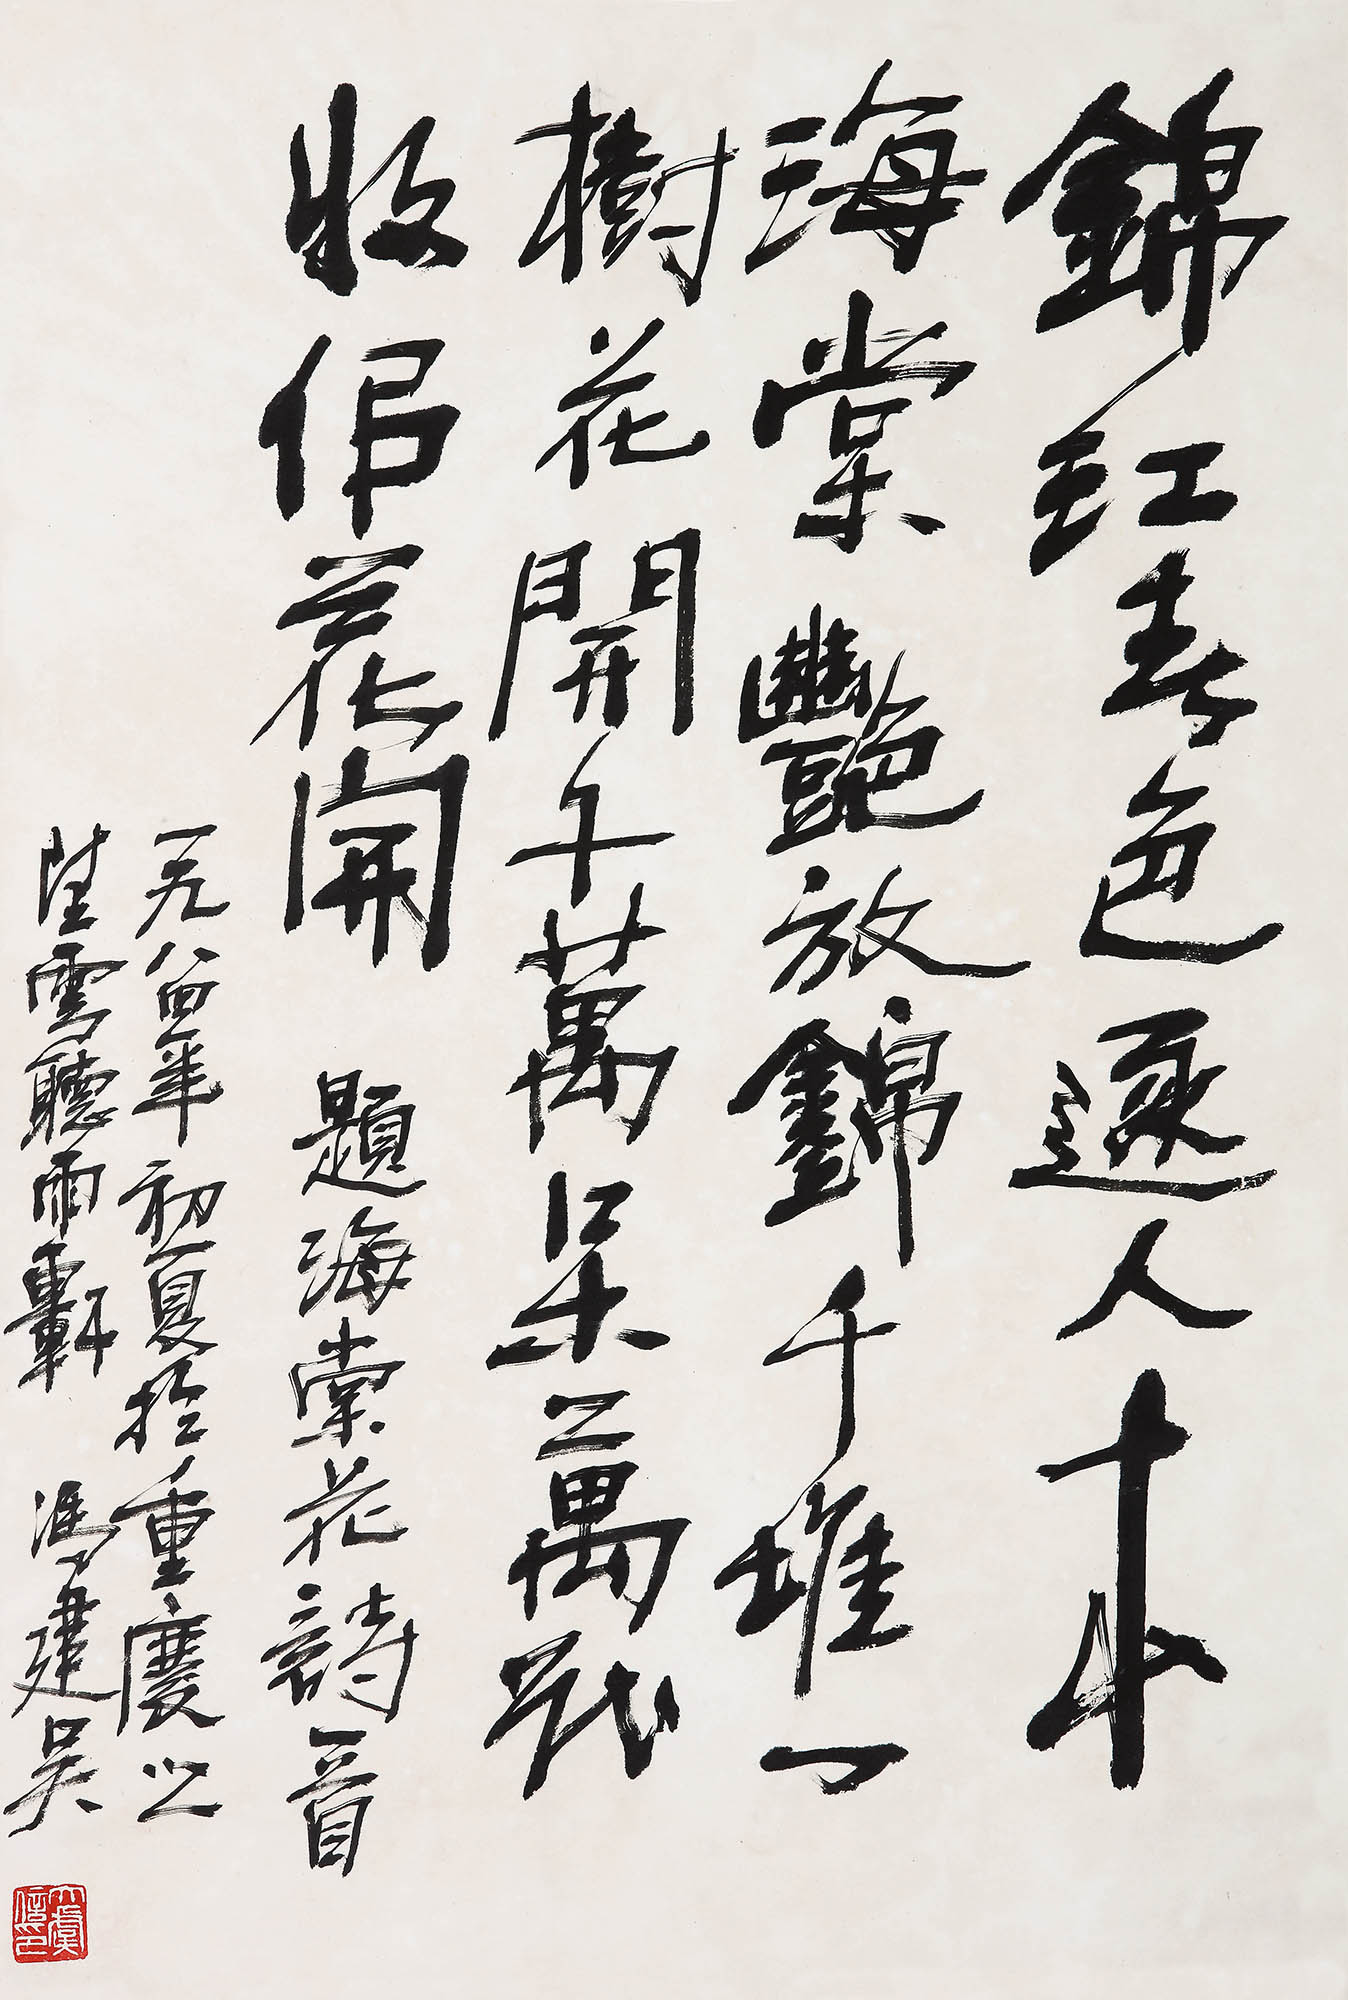 錦紅春色逐人來
海棠豔放錦千堆一
樹花開千萬朵萬
收花開 題海棠花詩一首
一九八四年初夏於重慶之
雪聽雨軒 馮建吳
大虞信印